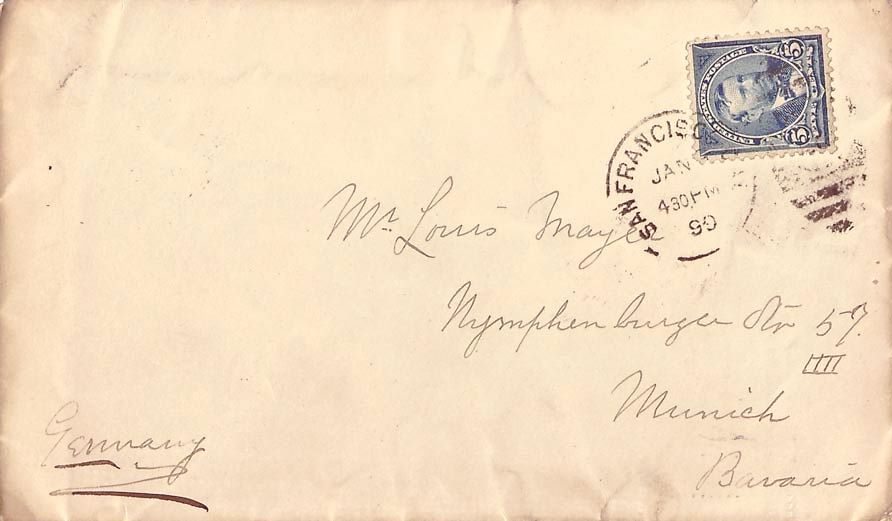 UNITED STATES POSTAGE
5 5
SAN FRANCISCO
JAN
430PM
Mr. Louis Mayer
Nymphenburger Str 57.
IIII
Munich
Bavaria
Germany